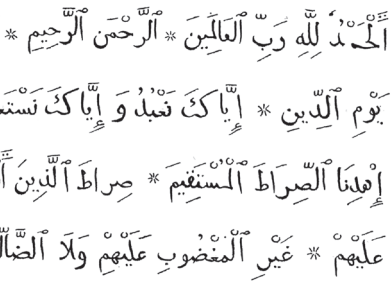 اَلْحَمْدُ لِلَّهِ رَبِّ ٱلْعَالَمِينَ * ٱلرَّحْمَنِ ٱلرَّحِيمِ *
يَوْمِ ٱلدِّينِ * إِيَّاكَ نَعْبُدُ وَ إِيَّاكَ
إِهْدِنَا ٱلصِّرَاطَ ٱلْمُسْتَقِيمَ * صِرَاطَ ٱلَّذِينَ
عَلَيْهِمْ * غَيْرِ ٱلْمَغْضُوبِ عَلَيْهِمْ وَلَا